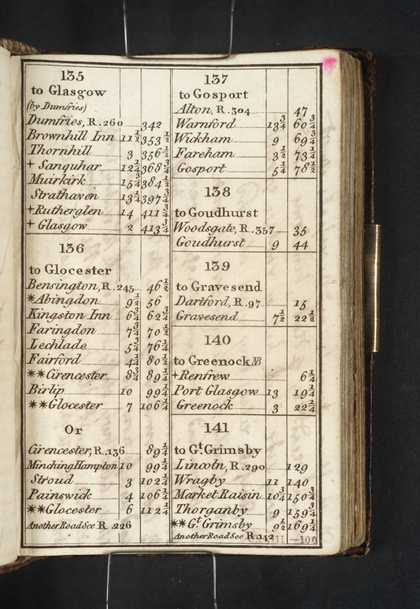 135
to Glasgow
(by Dumfries)
Dumfries, R. 260 342
Brownhill Inn 11 1/2 353 1/2
Thornhill 3 356 1/2
+ Sanquhar 12 1/4 368 3/4
Muirkirk 15 3/4 384 1/2
Strathaven 13 1/4 397 3/4
+ Rutherglen 14 411 3/4
+ Glasgow 2 413 3/4
136
to Glocester
Bensington, R. 245 46 1/2
*Abingdon 9 1/2 56
Kingston Inn 6 3/4 62 3/4
Faringdon 7 3/4 70 1/2
Lechlade 5 3/4 76 1/4
Fairford 4 1/4 80 1/2
**Cirencester 8 3/4 89 1/4
Birlip 10 99 1/4
**Glocester 7 106 1/4
Or
Cirencester, R. 136 89 1/4
Minching Hampton 10 99 1/4
Stroud 3 102 1/4
Painswick 4 106 1/4
**Glocester 6 112 1/4
Another Road See R. 226
137
to Gosport
Alton, R. 304 47
Warnford 13 3/4 60 3/4
Wickham 9 69 3/4
Fareham 3 1/2 73 1/4
Gosport 5 1/4 78 1/2
138
to Goudhurst
Woodsgate, R. 357 35
Goudhurst 9 44
139
to Gravesend
Dartford, R. 97 15
Gravesend 7 1/2 22 1/2
140
to Greenock NB
+Renfrew 6 1/4
Port Glasgow 13 19 1/4
Greenock 3 22 1/4
141
to Gt. Grimsby
Lincoln, R. 290 129
Wragby 11 140
Market Raisin 10 3/4 150 3/4
Thorganby 9 159 3/4
**Gt. Grimsby 9 1/2 169 1/4
Another Road See R. 142